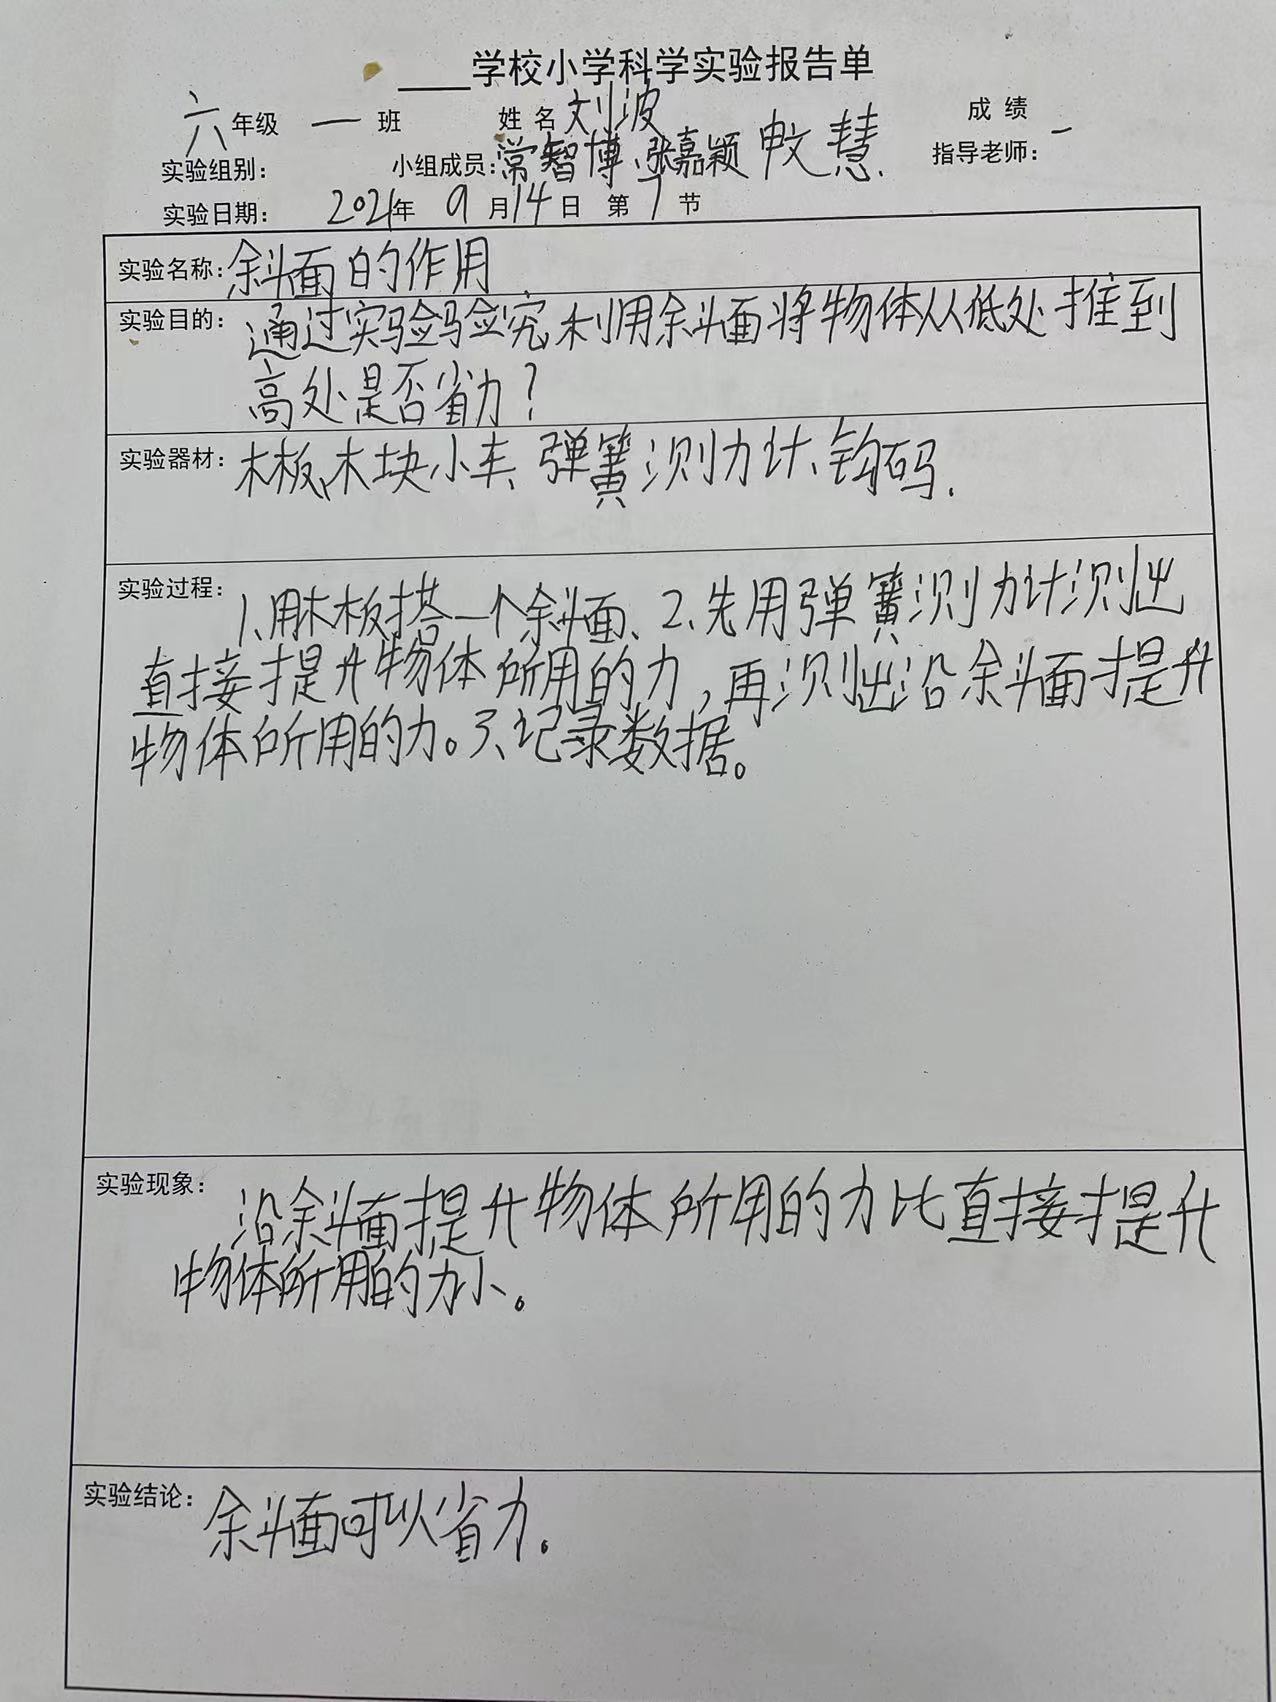 ____学校小学科学实验报告单
六年级 一 班 姓名 刘波 成绩
实验组别: 小组成员:常智博、张嘉颖 慧. 指导老师:
实验日期: 2021年 9月14日 第1节
实验名称:斜面的作用
实验目的:通过实验验究利用斜面将物体从低处推到
高处是否省力?
实验器材:木板、木块小车、弹簧测力计、钩码.
实验过程:1、用木板搭一个斜面、2、先用弹簧测力计测出
直接提升物体所用的力,再测出沿斜面提升
物体所用的力。3、记录数据。
实验现象:沿斜面提升物体所用的力比直接提升
物体所用的力小。
实验结论:斜面可以省力。